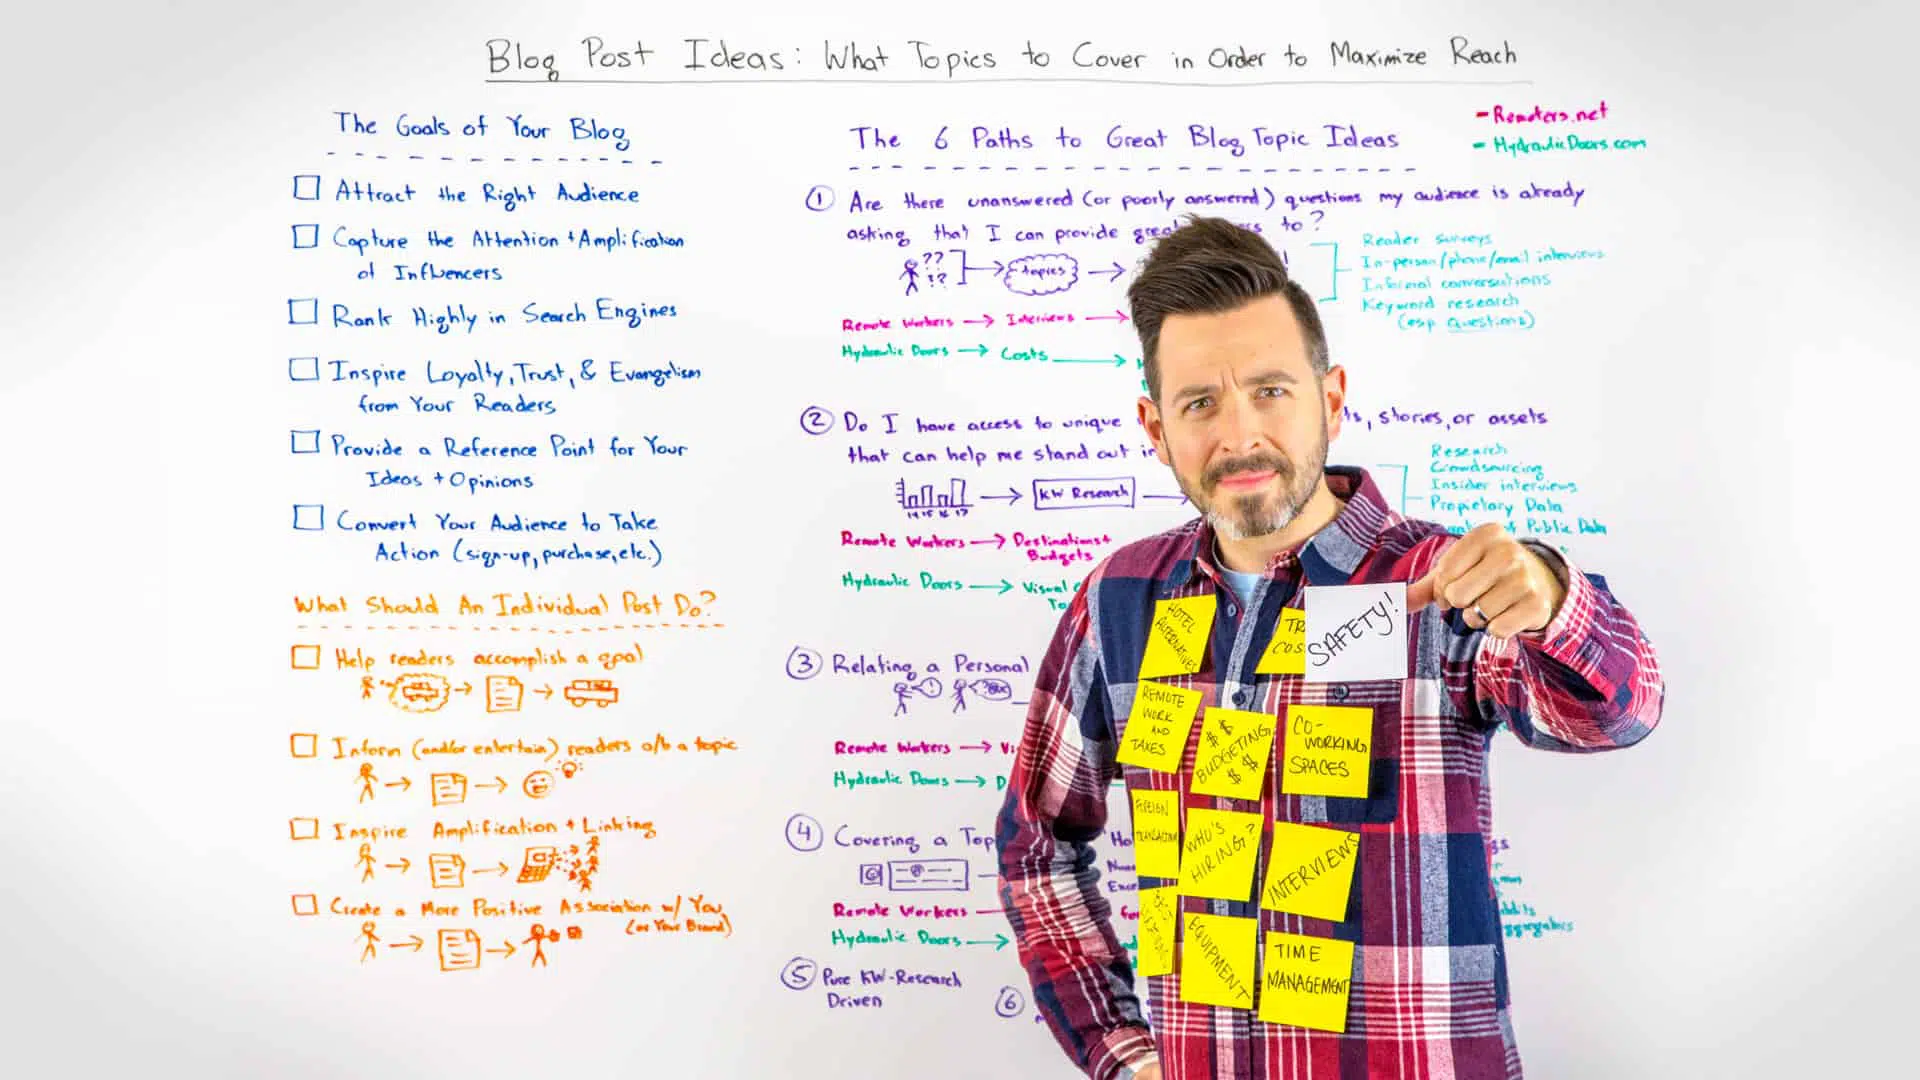 Blog Post Ideas: What Topics to Cover in Order to Maximize Reach
The Goals of Your Blog
Attract the Right Audience
Capture the Attention + Amplification
of Influencers
Rank Highly in Search Engines
Inspire Loyalty, Trust, & Evangelism
from Your Readers
Provide a Reference Point for Your
Ideas + Opinions
Convert Your Audience to Take
Action (sign-up, purchase, etc.)
What Should An Individual Post Do?
Help readers accomplish a goal
Inform (and/or entertain) readers a/b a topic
Inspire Amplification + Linking
Create a More Positive Association w/ You
(or Your Brand)
The 6 Paths to Great Blog Topic Ideas
- Remoters.net
- HydraulicDoors.com
1 Are there unanswered (or poorly answered) questions my audience is already
asking that I can provide to?
?? !?
topics
Reader surveys
In-person/phone/email interviews
Informal conversations
Keyword research
(esp questions)
Remote Workers → Interviews →
Hydraulic Doors → Costs →
2 Do I have access to unique stories, or assets
that can help me stand out in
14 15 16 17
KW Research
Research
Crowdsourcing
Insider interviews
Propietary Data
of Public Data
Remote Workers → Destinations +
Budgets
Hydraulic Doors → Visual
3 Relating a Personal
Remote Workers →
Hydraulic Doors →
4 Covering a
Remote Workers
Hydraulic Doors →
5 Pure KW-Research
Driven
6
HOTEL
ALTERNATIVES
SAFETY!
REMOTE
WORK
AND
TAXES
$ $
BUDGETING
$ $
CO-
WORKING
SPACES
FOREIGN
WHO'S
HIRING?
INTERVIEWS
EQUIPMENT
TIME
MANAGEMENT